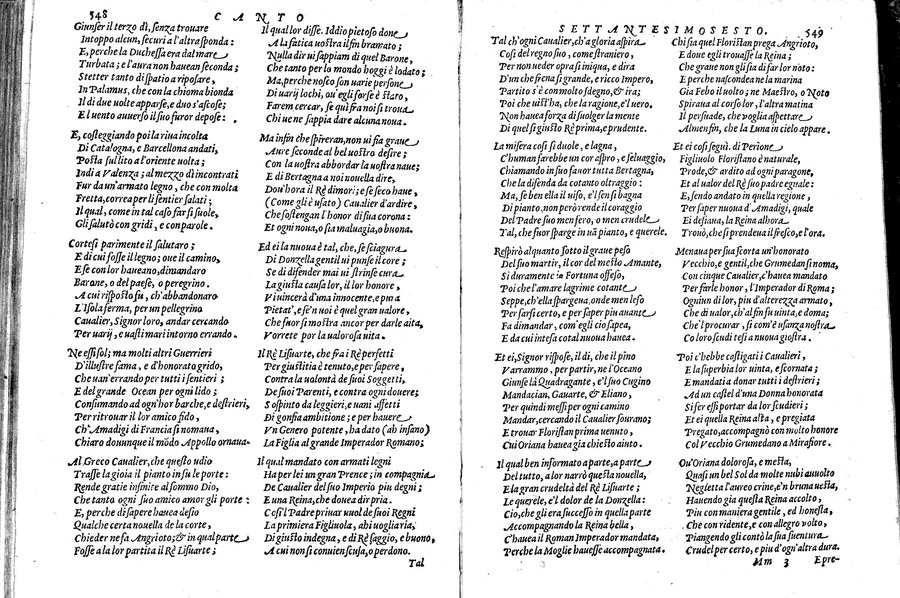 548 CANTO
Giunser il terzo dì, senza trouare
Intoppo alcun, securi a l'altra sponda:
E, perche la Duchessa era dal mare
Turbata; e l'aura non hauean seconda;
Stetter tanto di spatio a riposare,
In Palamus, che con la chioma bionda
Il dì due uolte apparse, e due s'ascose;
E l'uento auuerso il suo furor depose:
E, costeggiando poi la riua incolta
Di Catalogna, e Barcellona andati,
Posta sul lito a l'oriente uolta;
Indi a Valenza; al mezo dì incontrati
Fur da un'armato legno, che con molta
Fretta, correa per li sentier salati;
Il qual, come in tal caso far si suole,
Gli salutò con gridi, e con parole.
Cortesi parimente il salutaro;
E di cui fosse il legno; oue il camino,
E se con lor haueano, dimandaro
Barone, o del paese, o peregrino.
A cui risposto fù, ch'abbandonaro
L'Isola ferma, per un pellegrino
Caualier, Signor loro, andar cercando
Per uarij, e uasti mari intorno errando.
Ne essi sol; ma molti altri Guerrieri
D'illustre fama, e d'honorato grido,
Che uan'errando per tutti i sentieri;
E del grande Ocean per ogni lido;
Consumando ad ogn'hor barche, e destrieri,
Per ritrouar il lor amico fido,
Ch'Amadigi di Francia si nomaua,
Chiaro douunque il mōdo Appollo ornaua.
Al Greco Caualier, che questo udio
Trasse la gioia il pianto in su le porte:
Rende gratie infinite al sommo Dio,
Che tanto ogni suo amico amor gli porte:
E, perche di sapere hauea desio
Qualche certa nouella de la corte,
Chieder ne fa Angrioto; & in qual parte
Fosse a la lor partita il Rè Lisuarte;
Il qual lor disse. Iddio pietoso done
A la fatica uostra il fin bramato;
Nulla dir ui sappiam di quel Barone,
Che tanto per lo mondo hoggi è lodato;
Ma, perche noi so non uarie persone
Di uarij lochi, ou'egli forse è stato,
Farem cercar, se quì fra noi si troua
Chi ue ne sappia dare alcuna noua.
Ma infin che spireran, non ui sia graue
Aure seconde al bel uostro desire;
Con la uostra abbordar la nostra naue;
E di Bertagna a noi nouella dire,
Dou'hora il Rè dimori; e se seco haue,
(Come gli è usato) Caualier d'ardire,
Che sostengan l'honor di sua corona:
Et ogni noua, o sia maluagia, o buona.
Ed ei la nuoua è tal, che, se sciagura
Di Donzella gentil ui punse il core;
Se di difender mai ui strinse cura
La giusta causa lor, il lor honore,
Vi uincerà d'una innocente, e pura
Pietat', e se'n uoi è quel gran ualore,
Che fuor si mostra ancor per darle aita,
Vorrete por la ualorosa uita.
Il Rè Lisuarte, che fra i Rè perfetti
Per giustitia è tenuto, e per sapere,
Contra la uolontà de suoi Soggetti,
De suoi Parenti, e contra ogni douere;
Sospinto da leggieri, e uani affetti
Di gonfia ambitione; e per hauere
Vn Genero potente, ha dato (ah insano)
La Figlia al grande Imperador Romano;
Il qual mandato con armati legni
Ha per lei un gran Prence; in compagnia
De Caualier del suo Imperio più degni;
E una Reina, che douea dir pria.
Così'l Padre priuar uuol de suoi Regni
La primiera Figliuola, ahi uogliaria,
Di giusto indegna, e di Rè saggio, e buono,
A cui non si conuien scusa, o perdono.
Tal
SETTANTESIMOSESTO. 549
Tal ch'ogni Caualier, ch'a gloria aspira
Così del regno suo, come straniero,
Per non ueder opra sì iniqua, e dira
D'un che sì cna sì grande, e ricco Impero,
Partito s'è con molto sdegno, & ira;
Poi che uist'ha, che la ragione, e'l uero.
Non hauea forza di suolger la mente
Di quel sì giusto Rè prima, e prudente.
La misera così si duole, e lagna,
C'human farebbe un cor aspro, e seluaggio,
Chiamando in suo fauor tutta Bertagna,
Che la difenda da cotanto oltraggio:
Ma, se ben ella il uiso, e'l sen si bagna
Di pianto, non però rende il coraggio
Del Padre suo men fero, o men crudele
Tal, che suor sparge in uā pianto, e querele.
Respirò alquanto sotto il graue peso
Del suo martir, il cor del mesto Amante,
Sì duramente in Fortuna offeso,
Poi che l'amare lagrime cotante
Seppe, ch'ella spargeua, onde men leso
Per farsi certo, e per saper piu auante
Fa dimandar, com'egli ciò sapea,
E da cui intesa cotal nuoua hauea.
Et ei, Signor rispose, il dì, che il pino
Varrammo, per partir, ne l'Oceano
Giunse là Quadragante, e'l suo Cugino
Mandacian, Gauarte, & Eliano,
Per quindi messi per ogni camino
Mandar, cercando il Caualier sourano;
E trouar Floristan prima uenuto,
Cui Oriana hauea già chiesto aiuto.
Il qual ben informato a parte, a parte
Del tutto, a lor narrò questa nouella,
E la gran crudeltà del Rè Lisuarte;
Le querele, e'l dolor de la Donzella:
Cio, che gli era successo in quella parte
Accompagnando la Reina bella,
C'hauea il Roman Imperador mandata,
Perche la Moglie hauesse accompagnata.
Chi sia quel Floristan prega Angrioto,
E doue egli trouasse la Reina;
Che graue non gli sia di far lor noto:
E perche nascondea ne la marina
Gia Febo il uolto; ne Maestro, o Noto
Spiraua al corso lor, l'altra matina
Il persuade, che uoglia aspettare
Almen fin, che la Luna in cielo appare.
Et ei così seguì. di Perione
Figliuolo Floristano è naturale,
Prode, & ardito ad ogni paragone,
Et al ualor del Rè suo padre eguale:
E, sendo andato in quella regione,
Per saper nuoua d'Amadigi, quale
Ei desiaua, la Reina alhora
Trouò, che si prendeua il fresco, e l'ora.
Menaua per sua scorta un'honorato
Vecchio, e gentil, che Grumedan si noma,
Con cinque Caualier, c'hauea mandato
Per farle honor, l'Imperador di Roma;
Ogniun di lor, piu d'alterezza armato,
Che di ualor, ch'al fin fu uinta, e doma;
Che'l procurar, sì com'è usanza nostra
Co loro scudi tesi a nuoua giostra.
Poi c'hebbe castigati i Caualieri,
E la superbia lor uinta, e scornata;
E mandati a donar tutti i destrieri;
Ad un castel d'una Donna honorata
Si fer esso portar da lor scudieri;
Et ei quella Reina alta, e pregiata
Pregato, accompagnò con molto honore
Col Vecchio Grumedano a Mirafiore.
Ou'Oriana dolorosa, e mesta,
Quasi un bel Sol da molte nubi auuolto
Negletta l'aureo crine, e'n bruna uesta,
Hauendo già questa Reina accolto,
Piu con maniera gentile, ed honesta,
Che con ridente, e con allegro volto,
Piangendo gli contò la sua suentura
Crudel per certo, e piu d'ogn'altra dura.
Mm 3 Epre-